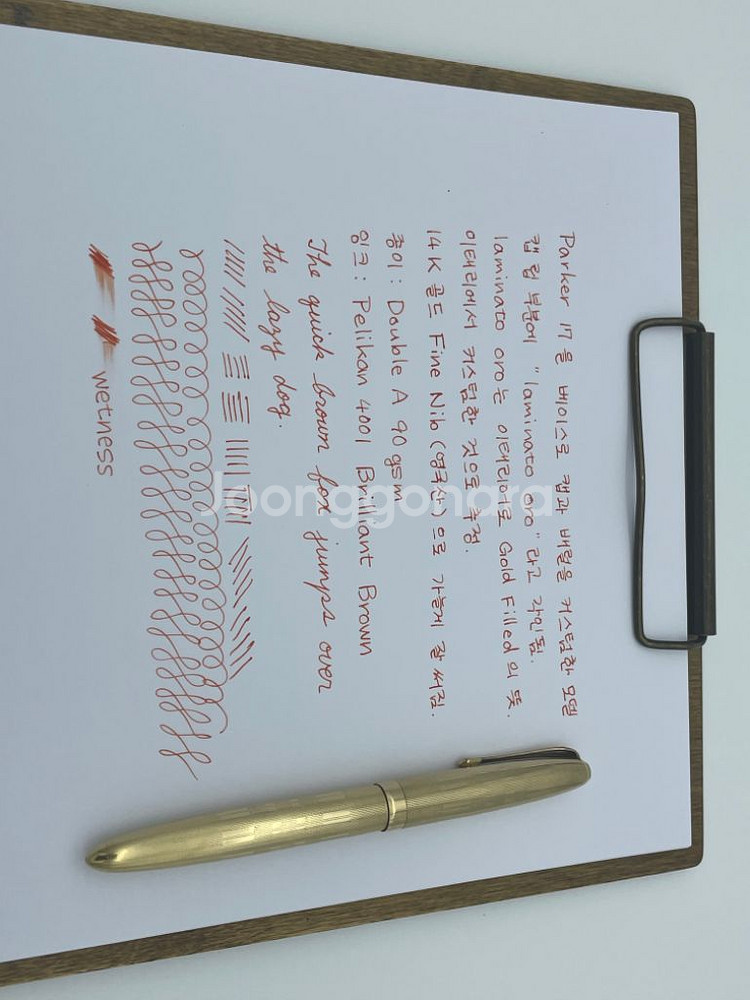 Parker 17을 베이스로 캡과 배럴을 커스텀한 모델
캡 립 부분에 "laminato oro"라고 각인됨.
laminato oro는 이태리어로 Gold Filled의 뜻.
이태리에서 커스텀한 것으로 추정.
14K 골드 Fine Nib (영국산)으로 가늘게 잘 써짐.
종이 : Double A 90gsm
잉크 : Pelikan 4001 Brilliant Brown
The quick brown fox jumps over
the lazy dog.
wetness
Joonggonara